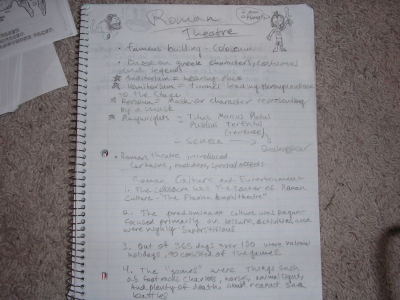 Roman
Theatre
• famous building - Coloseum
• Based on greek characters, costumes
and legends
☆ Auditorium = hearing place
☆ Vomitorium = Tunnel leading through audience
to the stage
☆ Persona = Mask or character represented
by a mask
☆ Playwrights = Titus Macus
Publius Terentis
→ Seneca →
• Roman theatre introduced
curtains, special effects
Roman Culture and Entertainment
1. The Coloseum was the center of Roman
culture - The Flavian Amphitheatre
2. The predominant culture was pagan
focused primarily on leisure activities, and
were highly superstitious
3. Out of 365 days over 150 were national
holidays, 90 consisted of the games.
4. The "games" were things such
as chariots, horses, animal fights
and plenty of deaths and
battles